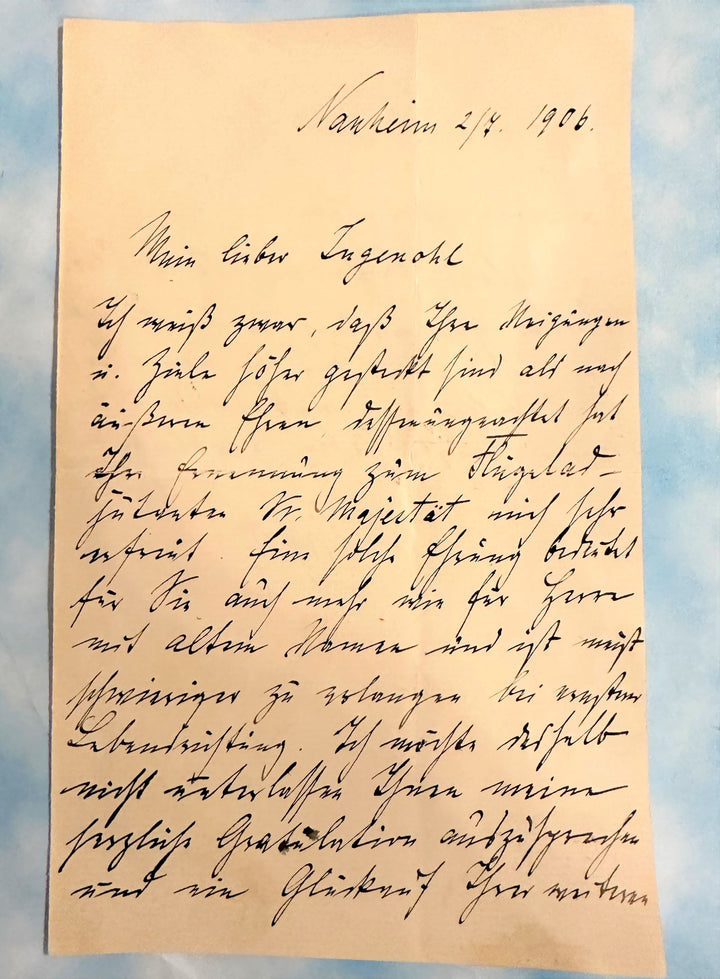 Nauheim 2/7. 1906.
Mein lieber Ingenohl
Ich weiß zwar, daß Ihre Neigungen
u. Ziele höher gesteckt sind als nach
äußeren Ehren dessenungeachtet hat
Ihre Ernennung zum Flügelad-
jutanten Sr. Majestät mich sehr
erfreut. Eine solche Ehrung bedeutet
für Sie auch mehr wie für Herren
mit altem Namen und ist meist
schwieriger zu erlangen bei ernster
Lebensrichtung. Ich möchte deshalb
nicht unterlassen Ihnen meine
herzliche Gratulation auszusprechen
und ein Glückauf Ihrer weiteren